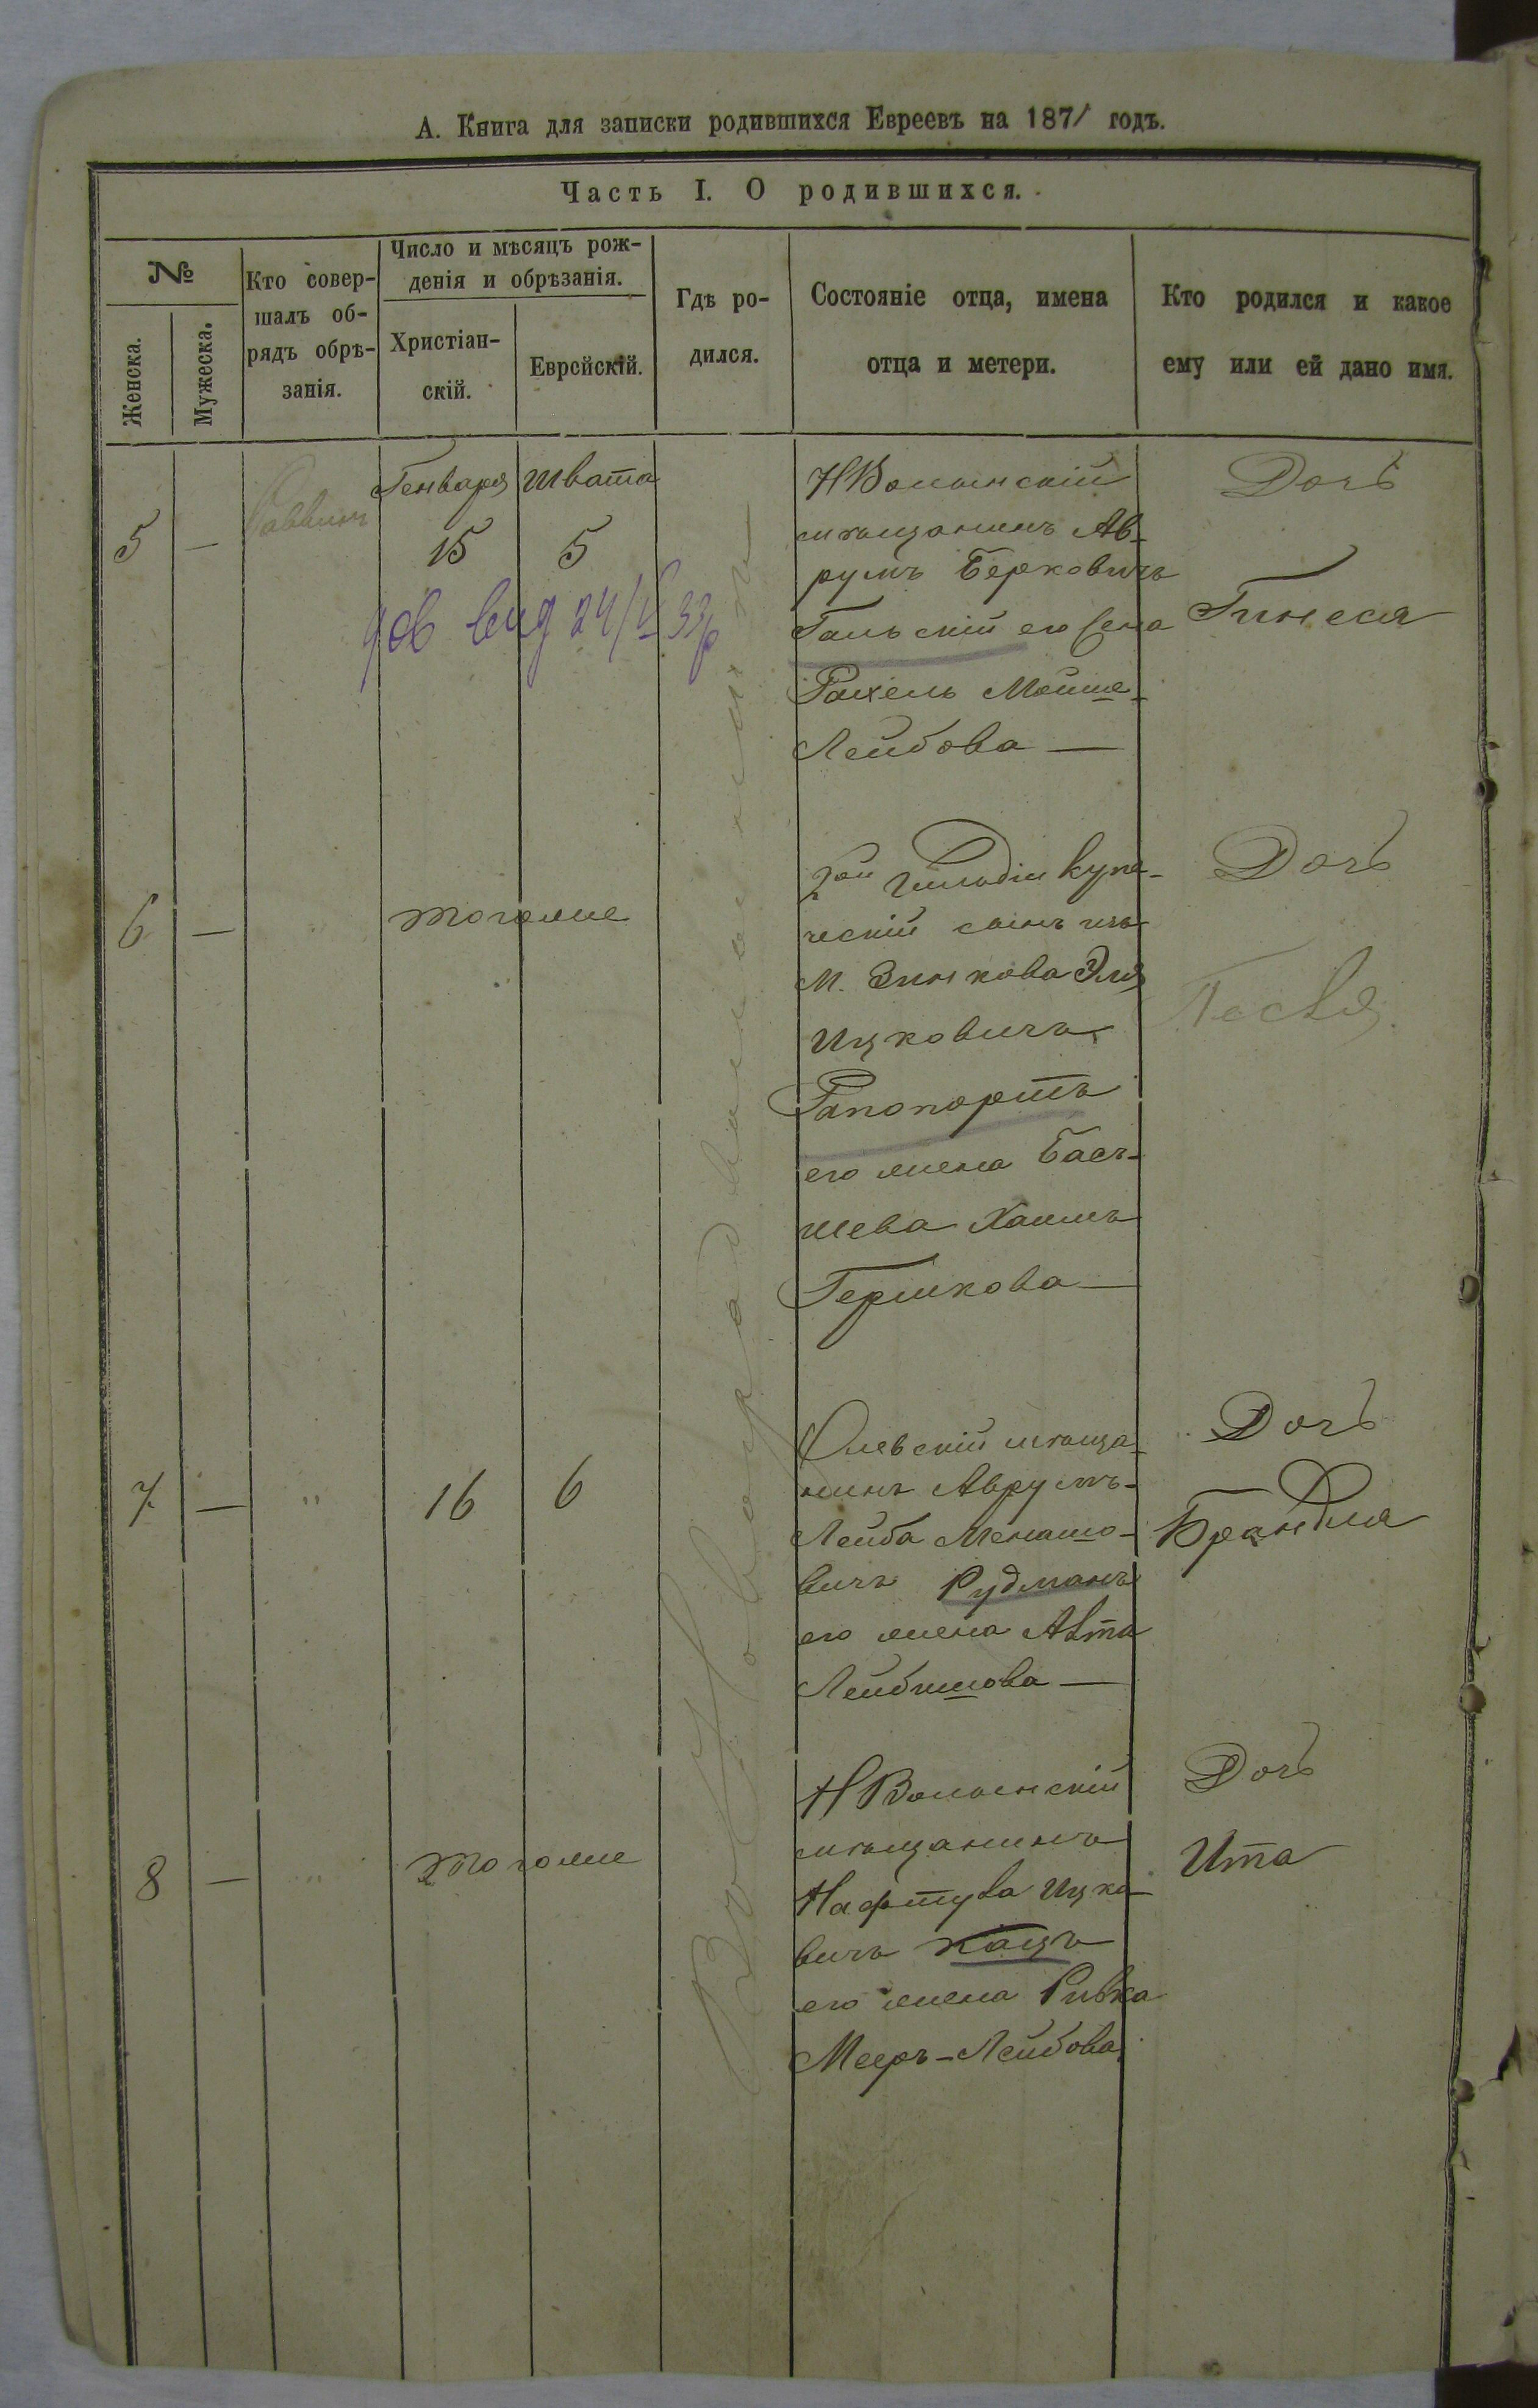 А. Книга для записки родившихся Евреевъ на 1871 годъ.
Часть I. О родившихся.
№
Женска.
Мужеска.
Кто совер-
шалъ об-
рядъ обрѣ-
занія.
Число и мѣсяцъ рож-
денія и обрѣзанія.
Христіан-
скій.
Еврейскій.
Гдѣ ро-
дился.
Состояніе отца, имена
отца и метери.
Кто родился и какое
ему или ей дано имя.
5 —
Раввинъ
Генваря Швата
15 5
24/V 33р
Въ Новоградволынскѣ
НВолынскій
мѣщанинъ Ав-
румъ Берковичъ
Гальскій его жена
Рахель Мойше-
Лейбова —
Дочь
Гинеся
6 —
"
тогоже
2ой гильдіи купе-
ческій сынъ изъ
м. Зинкова Эля
Ицковичъ
Рапопортъ
его жена Бась-
шева Хаимъ
Гершкова —
Дочь
Песя
7 —
"
16 6
Олевскій мѣща-
нинъ Аврумъ-
Лейба Менашо-
вичъ Рудманъ
его жена
Лейбишова —
Дочь
Брандля
8 —
"
тогоже
НВолынскій
мѣщанинъ
Нафтула Ицко-
вичъ Кацъ
его жена Ривка
Мееръ-Лейбова
Дочь
Ита